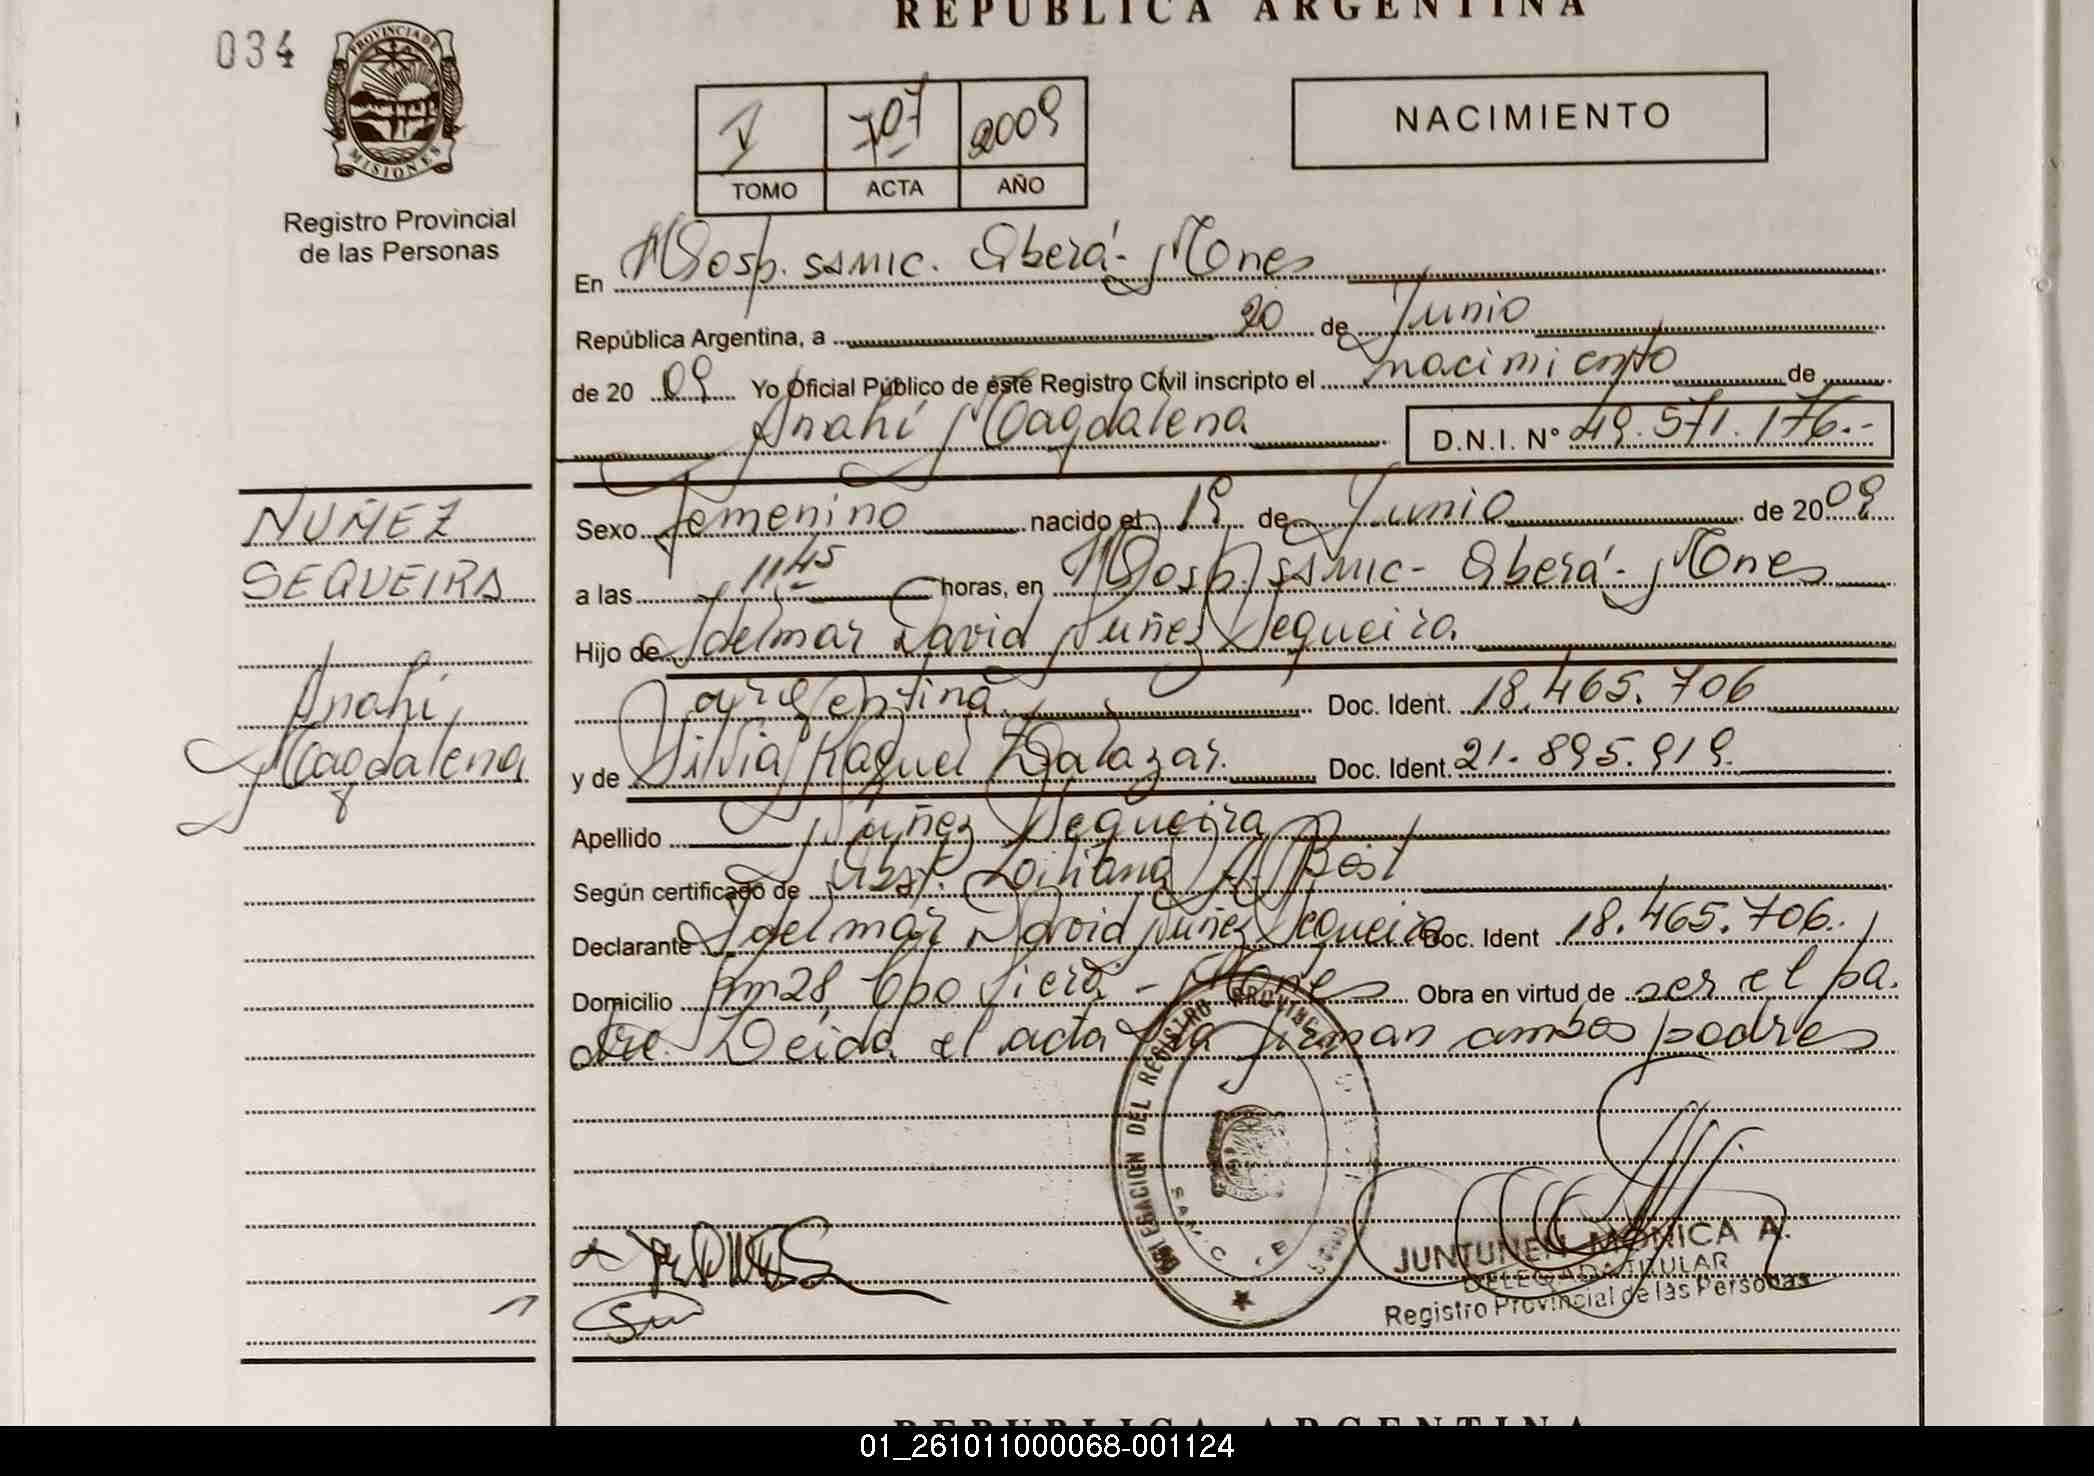 REPUBLICA ARGENTINA
034
PROVINCIA DE
MISIONES
Registro Provincial
de las Personas
707 2009
TOMO ACTA AÑO
NACIMIENTO
En Hosp. SAMIC. Oberá - Mnes
República Argentina, a 20 de Junio
de 20 09 Yo Oficial Público de este Registro Civil inscripto el nacimiento de
Anahí Magdalena D.N.I. N° 49.571.176.-
NUÑEZ
SEQUEIRA
Anahí
Magdalena
Sexo femenino nacido el 19 de Junio de 2009
a las 11 45 horas, en Hosp. SAMIC - Oberá - Mnes
Hijo de Idelmar David Nuñez Sequeira.
argentina Doc. Ident. 18.465.706
y de Silvia Raquel Salazar. Doc. Ident. 21.895.919.
Apellido Nuñez Sequeira
Según certificado de Obst. Liliana Best
Declarante Idelmar David Nuñez Sequeira Doc. Ident 18.465.706.
Domicilio Km 28, Cpo Viera - Mnes Obra en virtud de ser el pa.
dre. Leída el acta la firman ambos padres
DELEGACION DEL REGISTRO PROVINC
SAMIC
JUNTUNEN MONICA A.
DELEGADA TITULAR
Registro Provincial de las Personas
REPUBLICA ARGENTINA
01_261011000068-001124